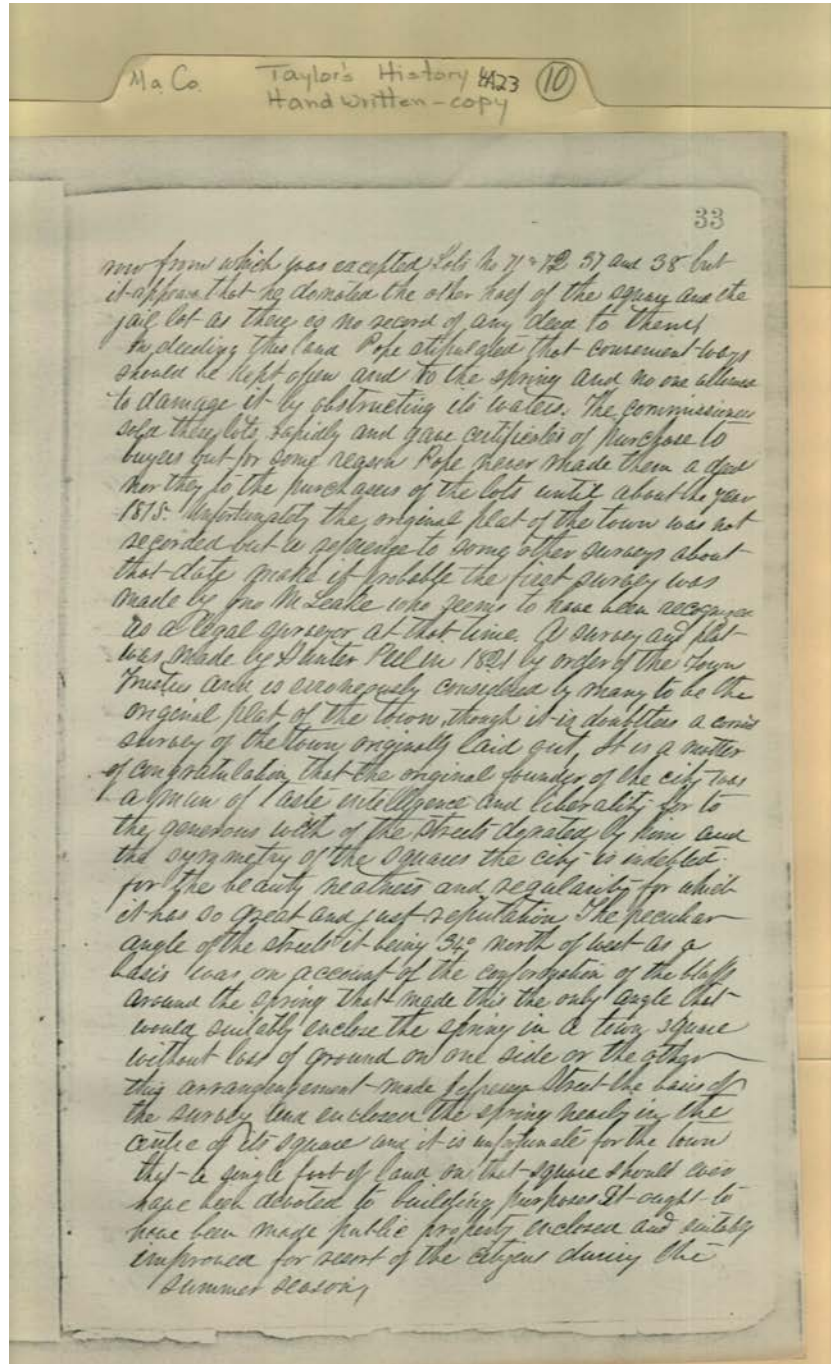 Ma. Co. Taylor's History 4A23 10
Handwritten-copy
33
now from which was excepted Lots No 71 & 72 37 and 38 but
it appears that he donated the other half of the square and the
jail lot as there is no record of any deed to them.
In deeding this land Pope stipulated that convenient ways
should be kept open and to the spring and no one allowed
to damage it by obstructing its waters. The commissioners
sold these lots rapidly and gave certificates of purchase to
buyers but for some reason Pope never made them a deed
nor they to the purchasers of the lots until about the year
1815. Unfortunately the original plat of the town was not
recorded but a reference to some other surveys about
that date make it probable the first survey was
made by Jno M Leake who seems to have been recognized
as a legal surveyor at that time. A survey and plat
was made by Hunter Peel in 1821 by order of the Town
Trustees and is erroneously considered by many to be the
original plat of the town, though it is doubtless a correct
survey of the town originally laid out. It is a matter
of congratulation that the original founder of the city was
a man of taste intelligence and liberality for to
the generous width of the streets donated by him and
the symmetry of the squares the city is indebted
for the beauty neatness and regularity for which
it has so great and just reputation The peculiar
angle of the streets it being 34° north of west as a
basis was on account of the conformation of the bluffs
around the spring that made this the only angle that
would suitably enclose the spring in a town square
without loss of ground on one side or the other
this arrangengement made Jefferson Street the basis of
the survey and enclosed the spring nearly in the
centre of its square and it is unfortunate for the town
that a single foot of land on that square should ever
have been devoted to building purposes It ought to
have been made public property enclosed and suitably
improved for resort of the citizens during the
summer season,